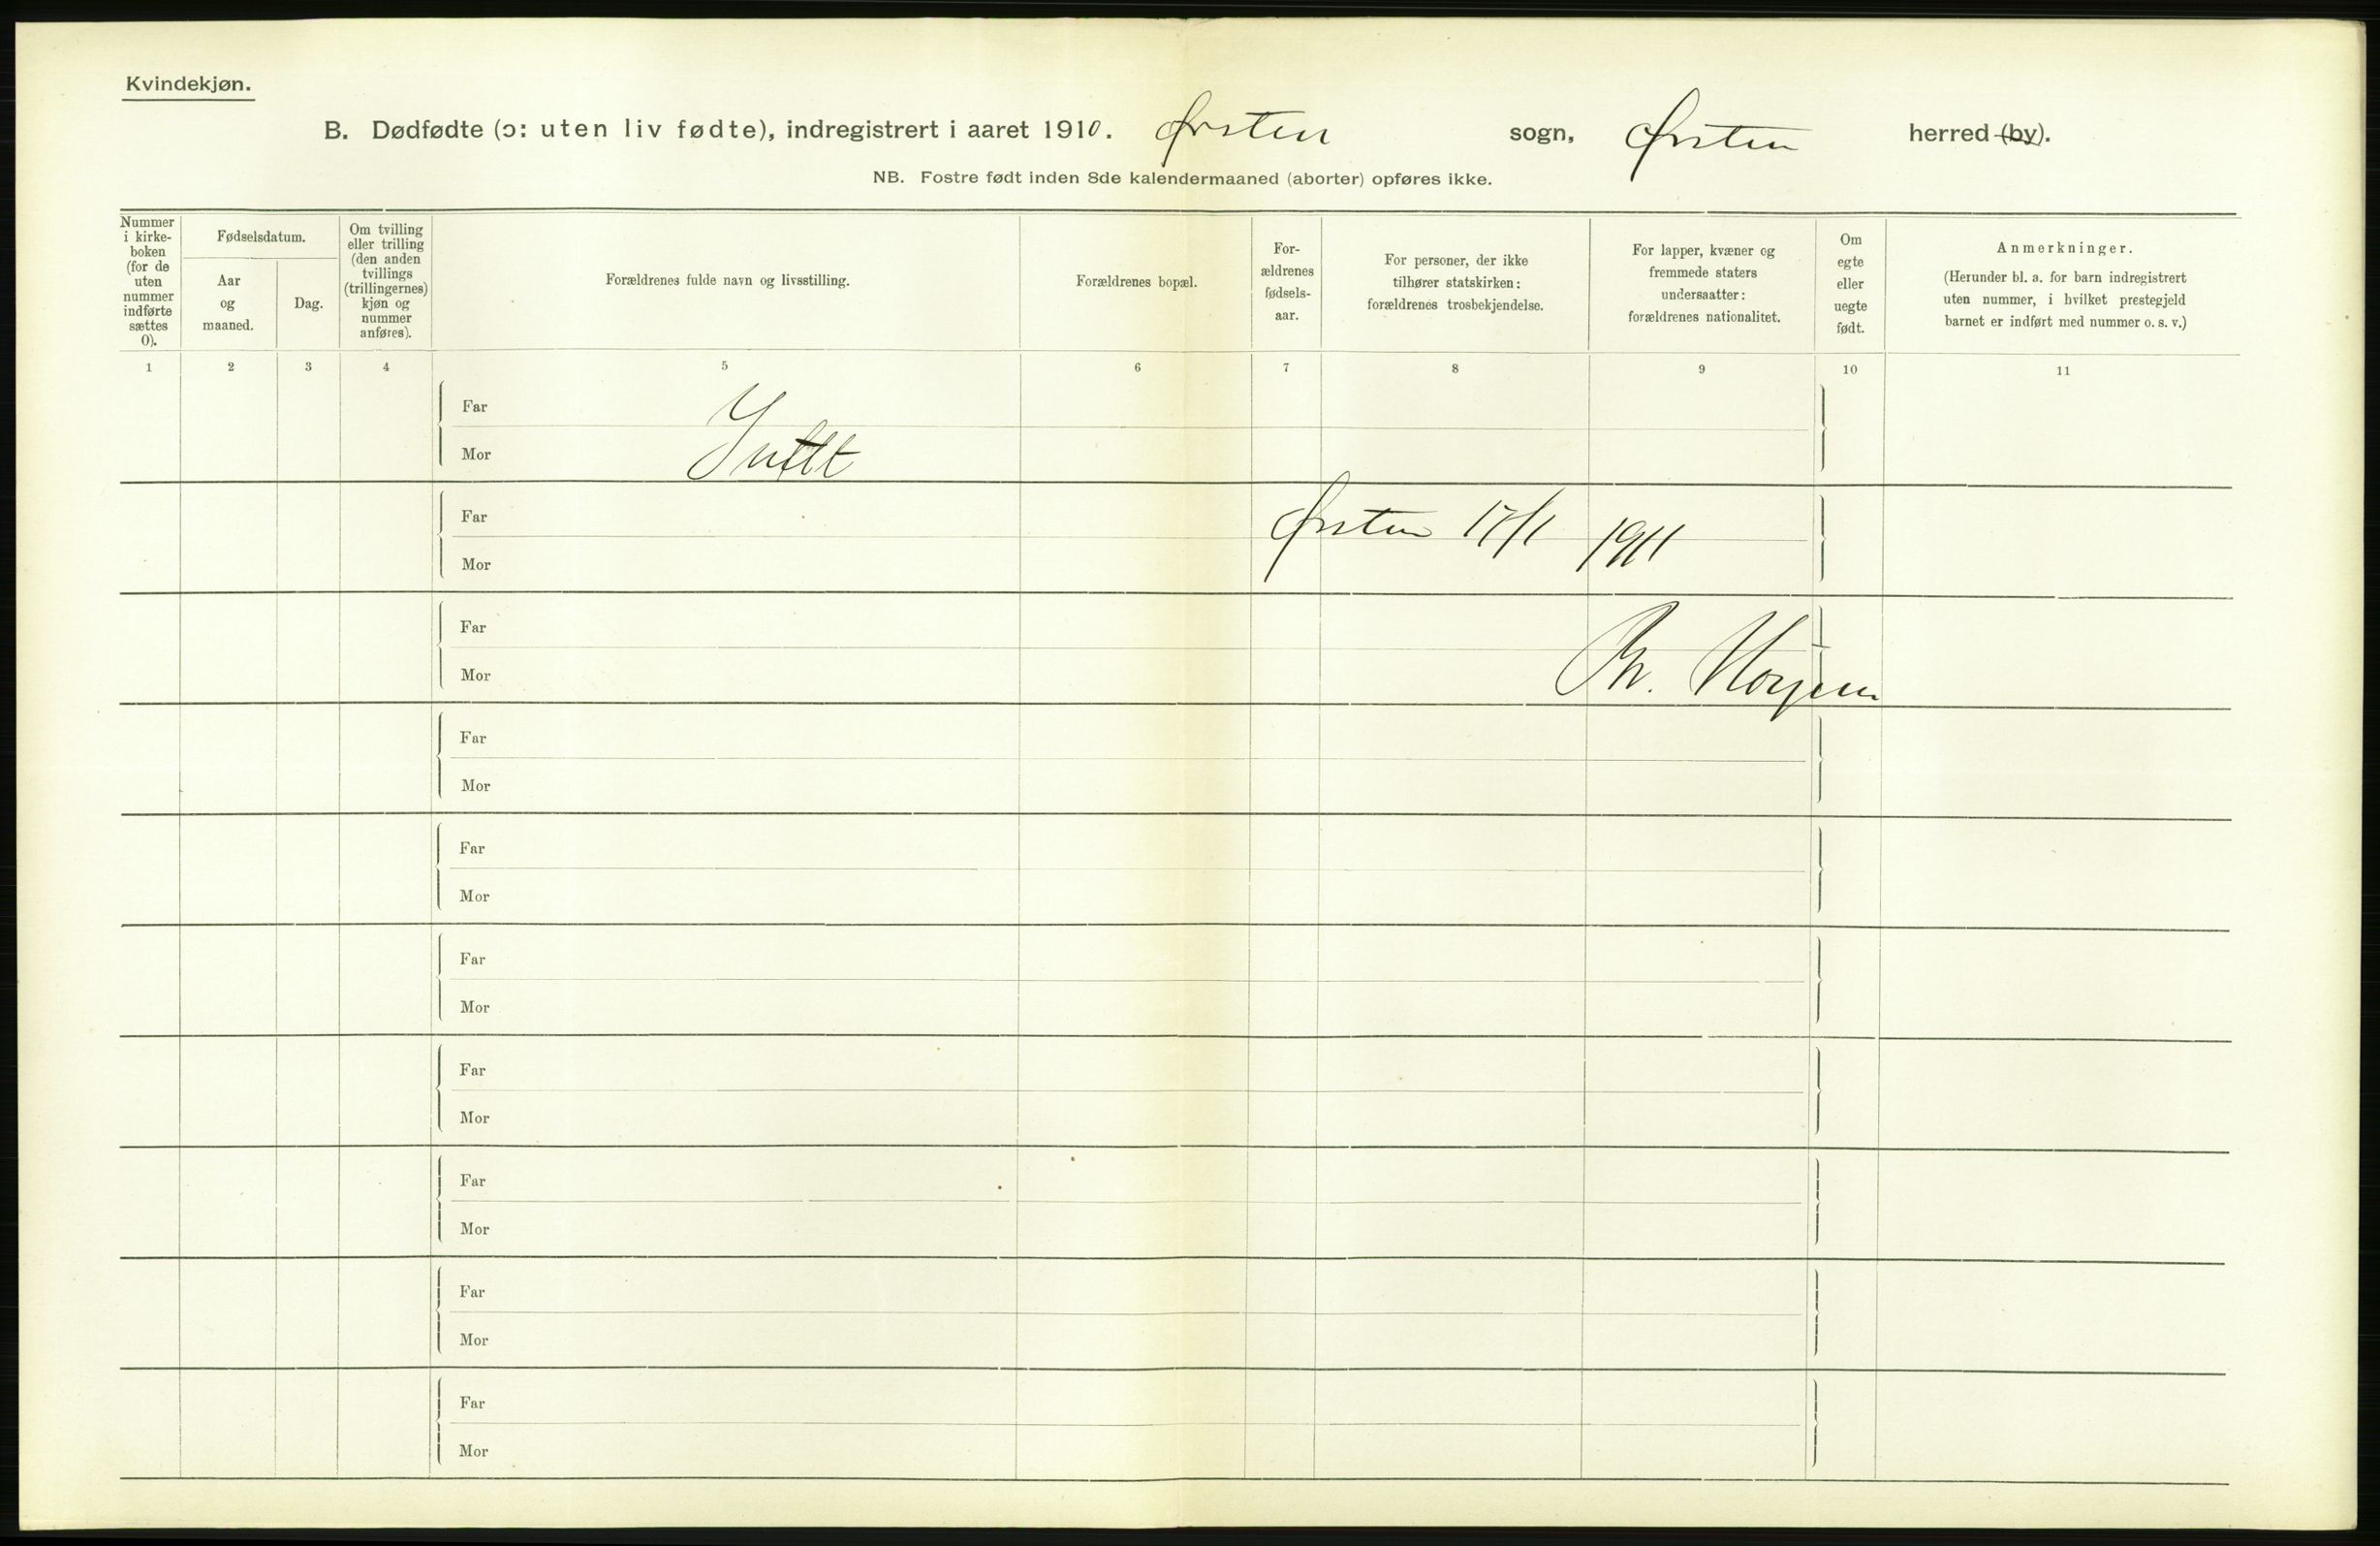 Kvindekjøn.
B. Dødfødte (ɔ: uten liv fødte), indregistrert i aaret 1910. Ørsten sogn, Ørsten herred (by).
NB. Fostre født inden 8de kalendermaaned (aborter) opføres ikke.
Nummer
i kirke-
boken
(for de
uten
nummer
indførte
sættes
0).
Fødselsdatum.
Aar
og
maaned.
Dag.
Om tvilling
eller trilling
(den anden
tvillings
(trillingernes)
kjøn og
nummer
anføres).
Forældrenes fulde navn og livsstilling.
Forældrenes bopæl.
For-
ældrenes
fødsels-
aar.
For personer, der ikke
tilhører statskirken:
forældrenes trosbekjendelse.
For lapper, kvæner og
fremmede staters
undersaatter:
forældrenes nationalitet.
Om
egte
eller
uegte
født.
Anmerkninger.
(Herunder bl. a. for barn indregistrert
uten nummer, i hvilket prestegjeld
barnet er indført med nummer o. s. v.)
1 2 3 4 5 6 7 8 9 10 11
Far
Mor Intet
Far Ørsten 17/1 1911
Mor
Far
Mor
Far
Mor
Far
Mor
Far
Mor
Far
Mor
Far
Mor
Far
Mor
Far
Mor